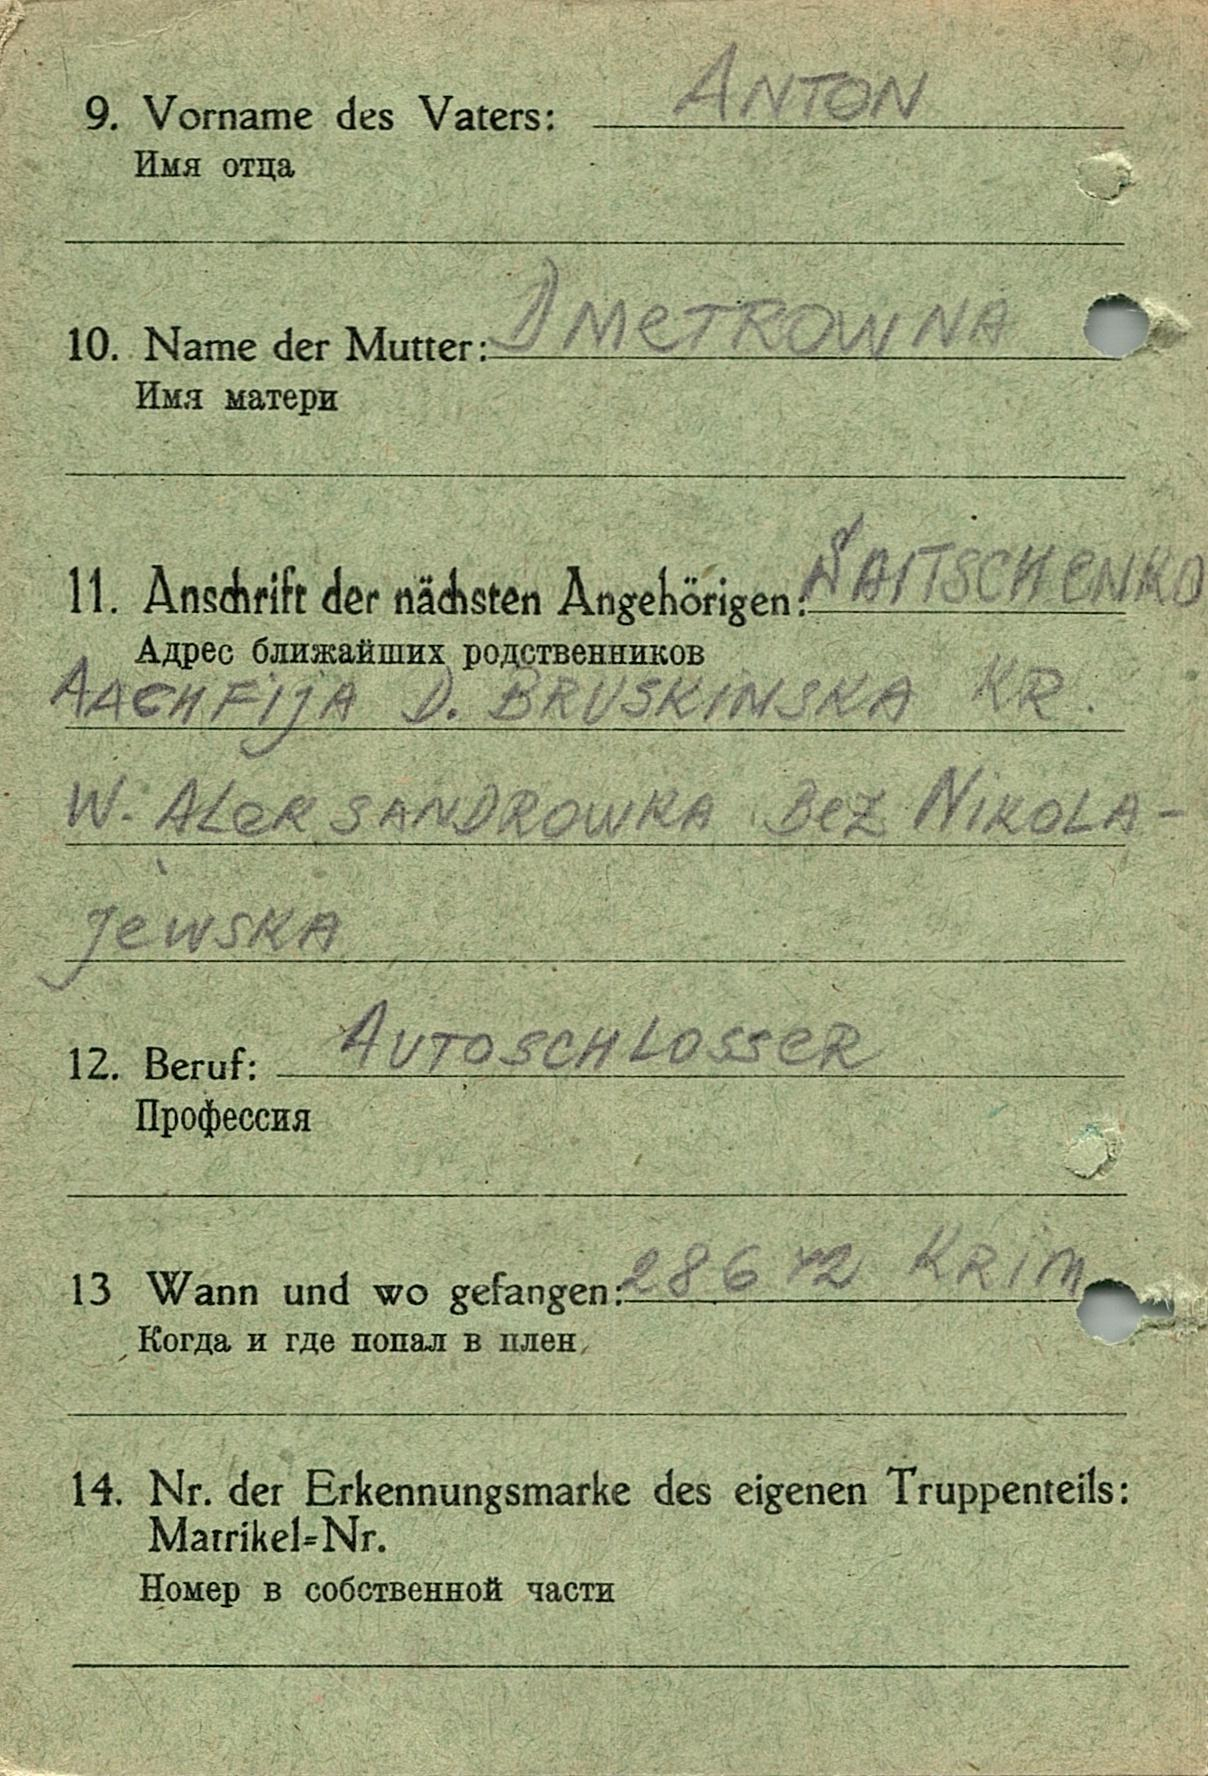 9. Vorname des Vaters: ANTON
Имя отца
10. Name der Mutter: DMETROWNA
Имя матери
11. Anschrift der nächsten Angehörigen: SAITSCHENKO
Адрес ближайших родственников
D. BRUSKINSKA KR.
W. ALEKSANDROWKA BEZ NIKOLA-
JEWSKA
12. Beruf: AUTOSCHLOSSER
Профессия
13 Wann und wo gefangen: 28 6 42 KRIM
Когда и где попал в плен
14. Nr. der Erkennungsmarke des eigenen Truppenteils:
Matrikel=Nr.
Номер в собственной части